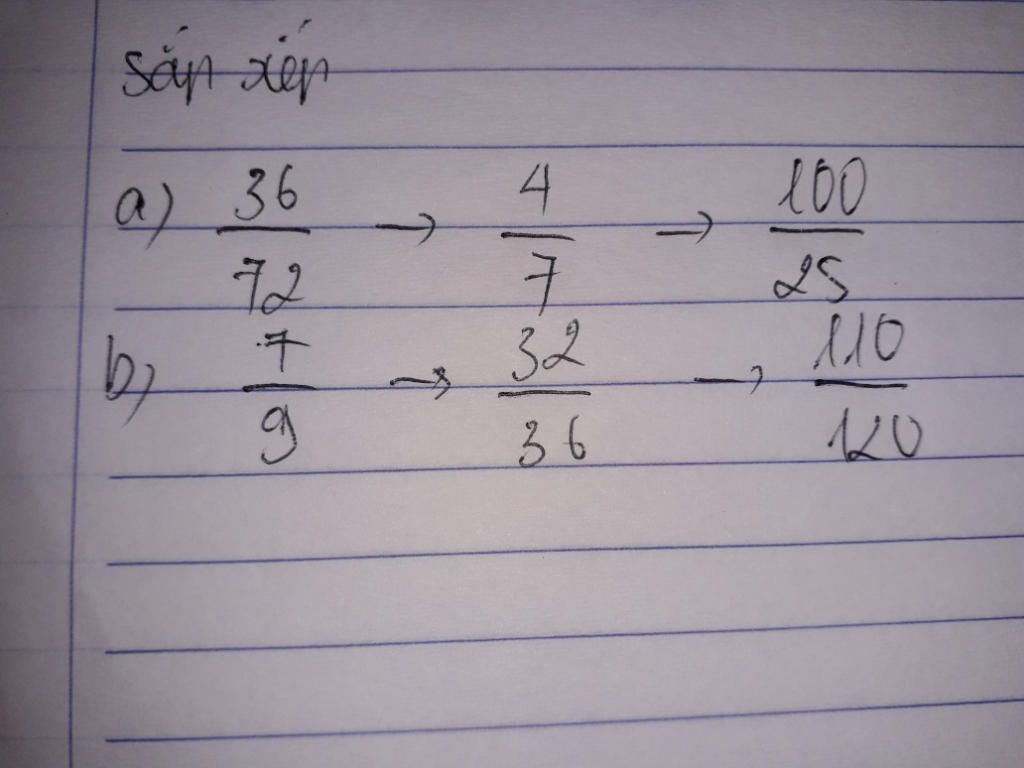 sắp xếp
a) 36/72 → 4/7 → 100/25
b) 7/9 → 32/36 → 110/120